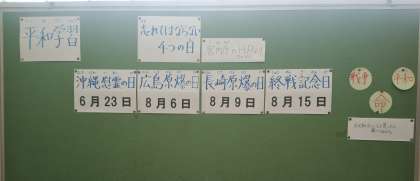 平和学習
忘れてはならない
4つの日
沖縄慰霊の日
6月23日
広島原爆の日
8月6日
長崎原爆の日
8月9日
終戦記念日
8月15日
戦争
命